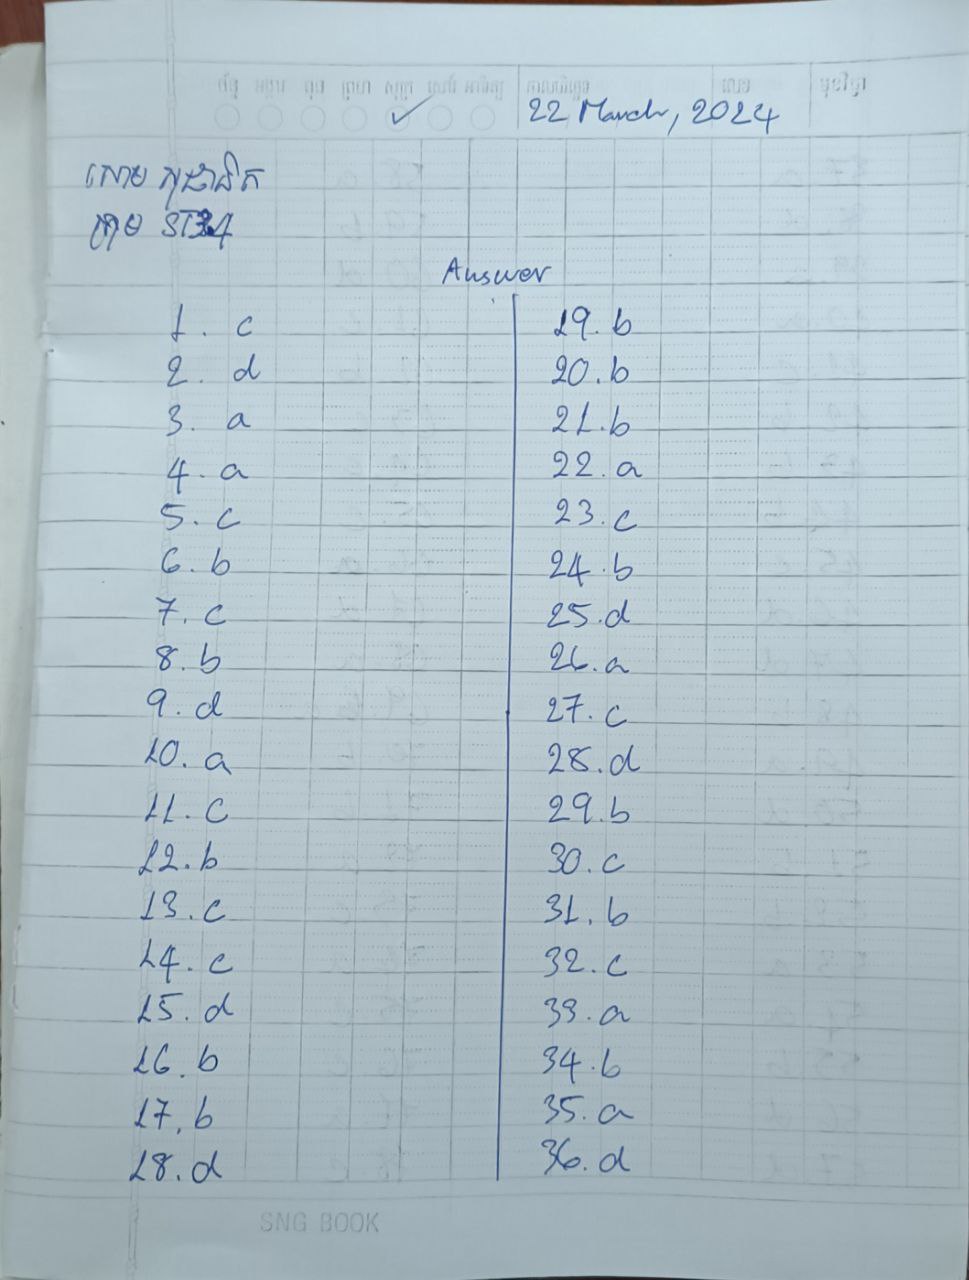 ច័ន្ទ អង្គារ ពុធ ព្រហ សុក្រ សៅរ៍ អាទិត្យ កាលបរិច្ឆេទ លេខ មុខវិជ្ជា
22 March, 2024
សោម សុជានិត
ក្រុម ST34
Answer
1. c
2. d
3. a
4. a
5. c
6. b
7. c
8. b
9. d
10. a
11. c
12. b
13. c
14. c
15. d
16. b
17. b
18. d
19. b
20. b
21. b
22. a
23. c
24. b
25. d
26. a
27. c
28. d
29. b
30. c
31. b
32. c
33. a
34. b
35. a
36. d
SNG BOOK